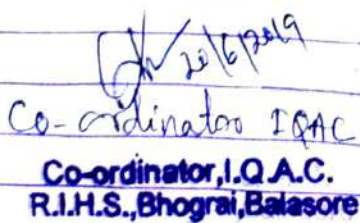 20/6/2019
Co-ordinator IQAC
Co-ordinator,I.Q.A.C.
R.I.H.S.,Bhograi,Balasore